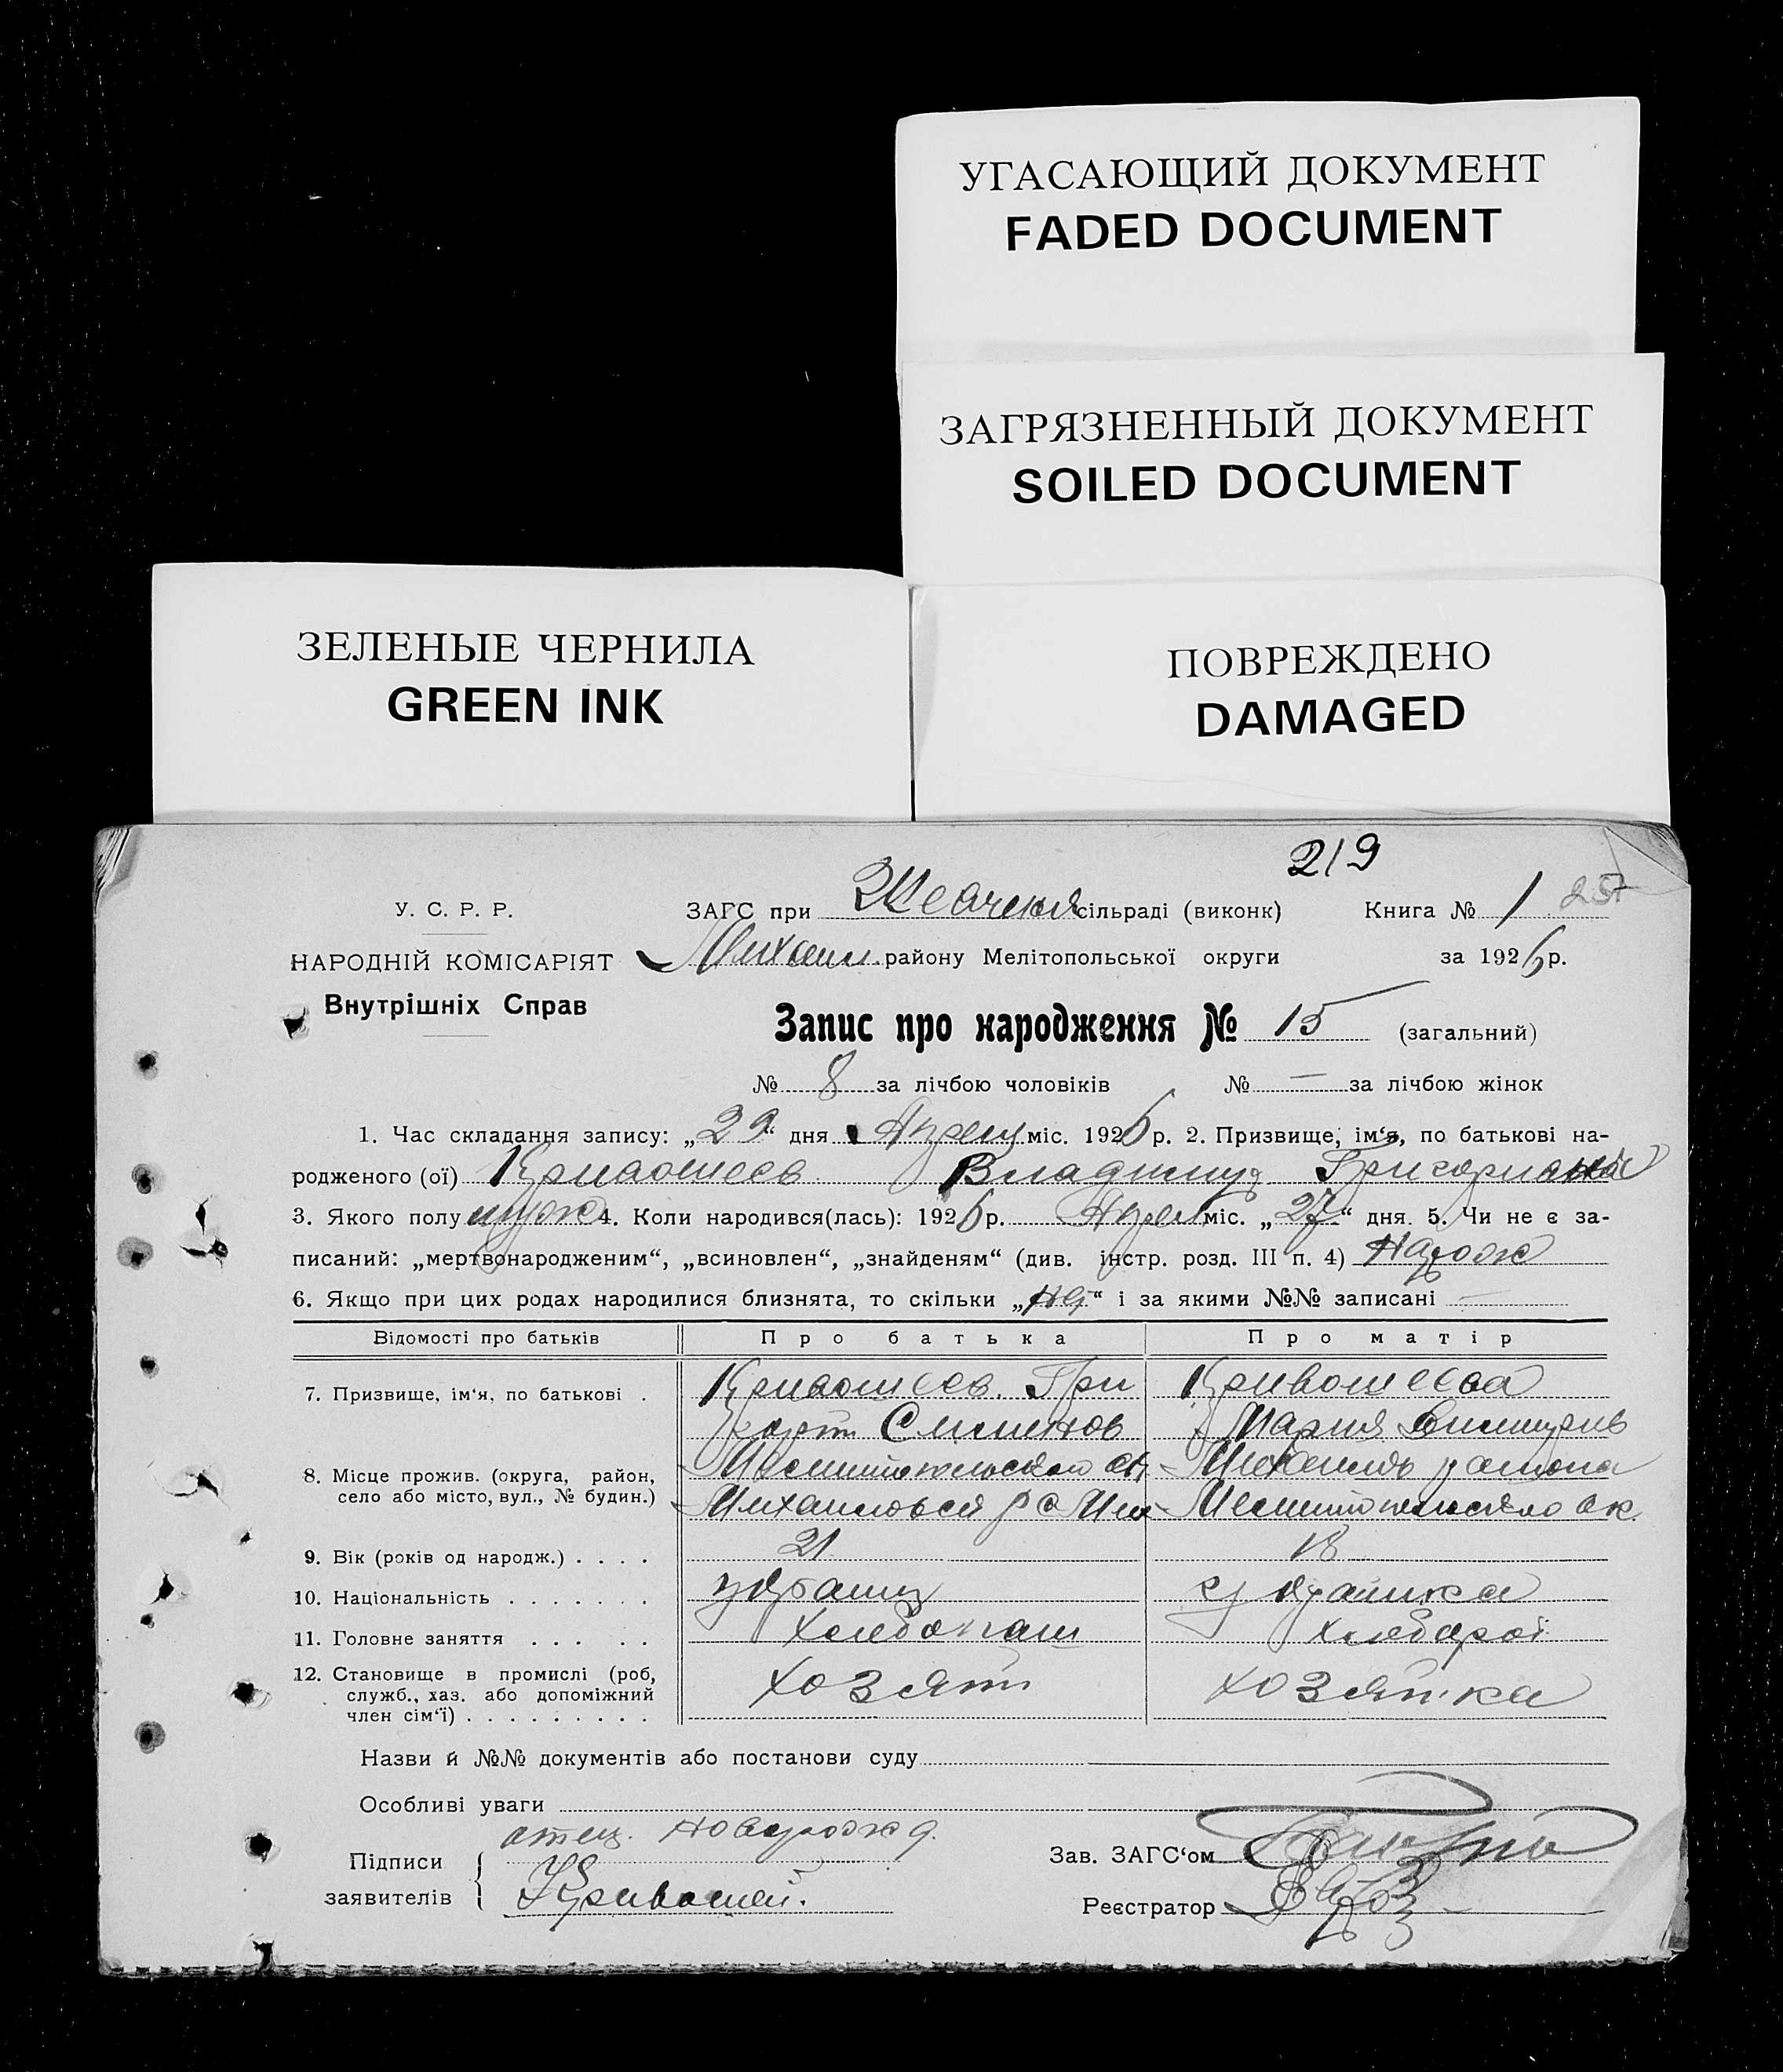 УГАСАЮЩИЙ ДОКУМЕНТ
FADED DOCUMENT
ЗАГРЯЗНЕННЫЙ ДОКУМЕНТ
SOILED DOCUMENT
ЗЕЛЕНЫЕ ЧЕРНИЛА
GREEN INK
ПОВРЕЖДЕНО
DAMAGED
219
У. С. Р. Р.
ЗАГС при сільраді (виконк) Книга № 1
НАРОДНІЙ КОМІСАРІЯТ
Михайл. району Мелітопольської округи за 1926 р.
Внутрішніх Справ
Запис про народження № 15 (загальний)
№ 8 за лічбою чоловіків № — за лічбою жінок
1. Час складання запису: „29“ дня Апреля міс. 1926 р. 2. Призвище, ім‘я, по батькові на-
родженого (ої) Кривошеев Владимир
3. Якого полу муж 4. Коли народився(лась): 1926 р. Апрел міс. „27“ дня. 5. Чи не є за-
писаний: „мертвонародженим“, „всиновлен“, „знайденям“ (див. інстр. розд. III п. 4)
6. Якщо при цих родах народилися близнята, то скільки „ “ і за якими №№ записані —
Відомості про батьків Про батька Про матір
7. Призвище, ім‘я, по батькові . Кривошеев Гри Кривошеева
Мария
8. Місце прожив. (округа, район,
село або місто, вул., № будин.)
9. Вік (років од народж.) . . . . 21 18
10. Національність . . . . . . .
11. Головне заняття . . . . . Хлебопаш
12. Становище в промислі (роб,
служб., хаз. або допоміжний
член сім‘ї) . . . . . . . . . хозяин хозяйка
Назви й №№ документів або постанови суду
Особливі уваги
отец
Підписи
Зав. ЗАГС‘ом
заявителів Кривошей.
Реєстратор